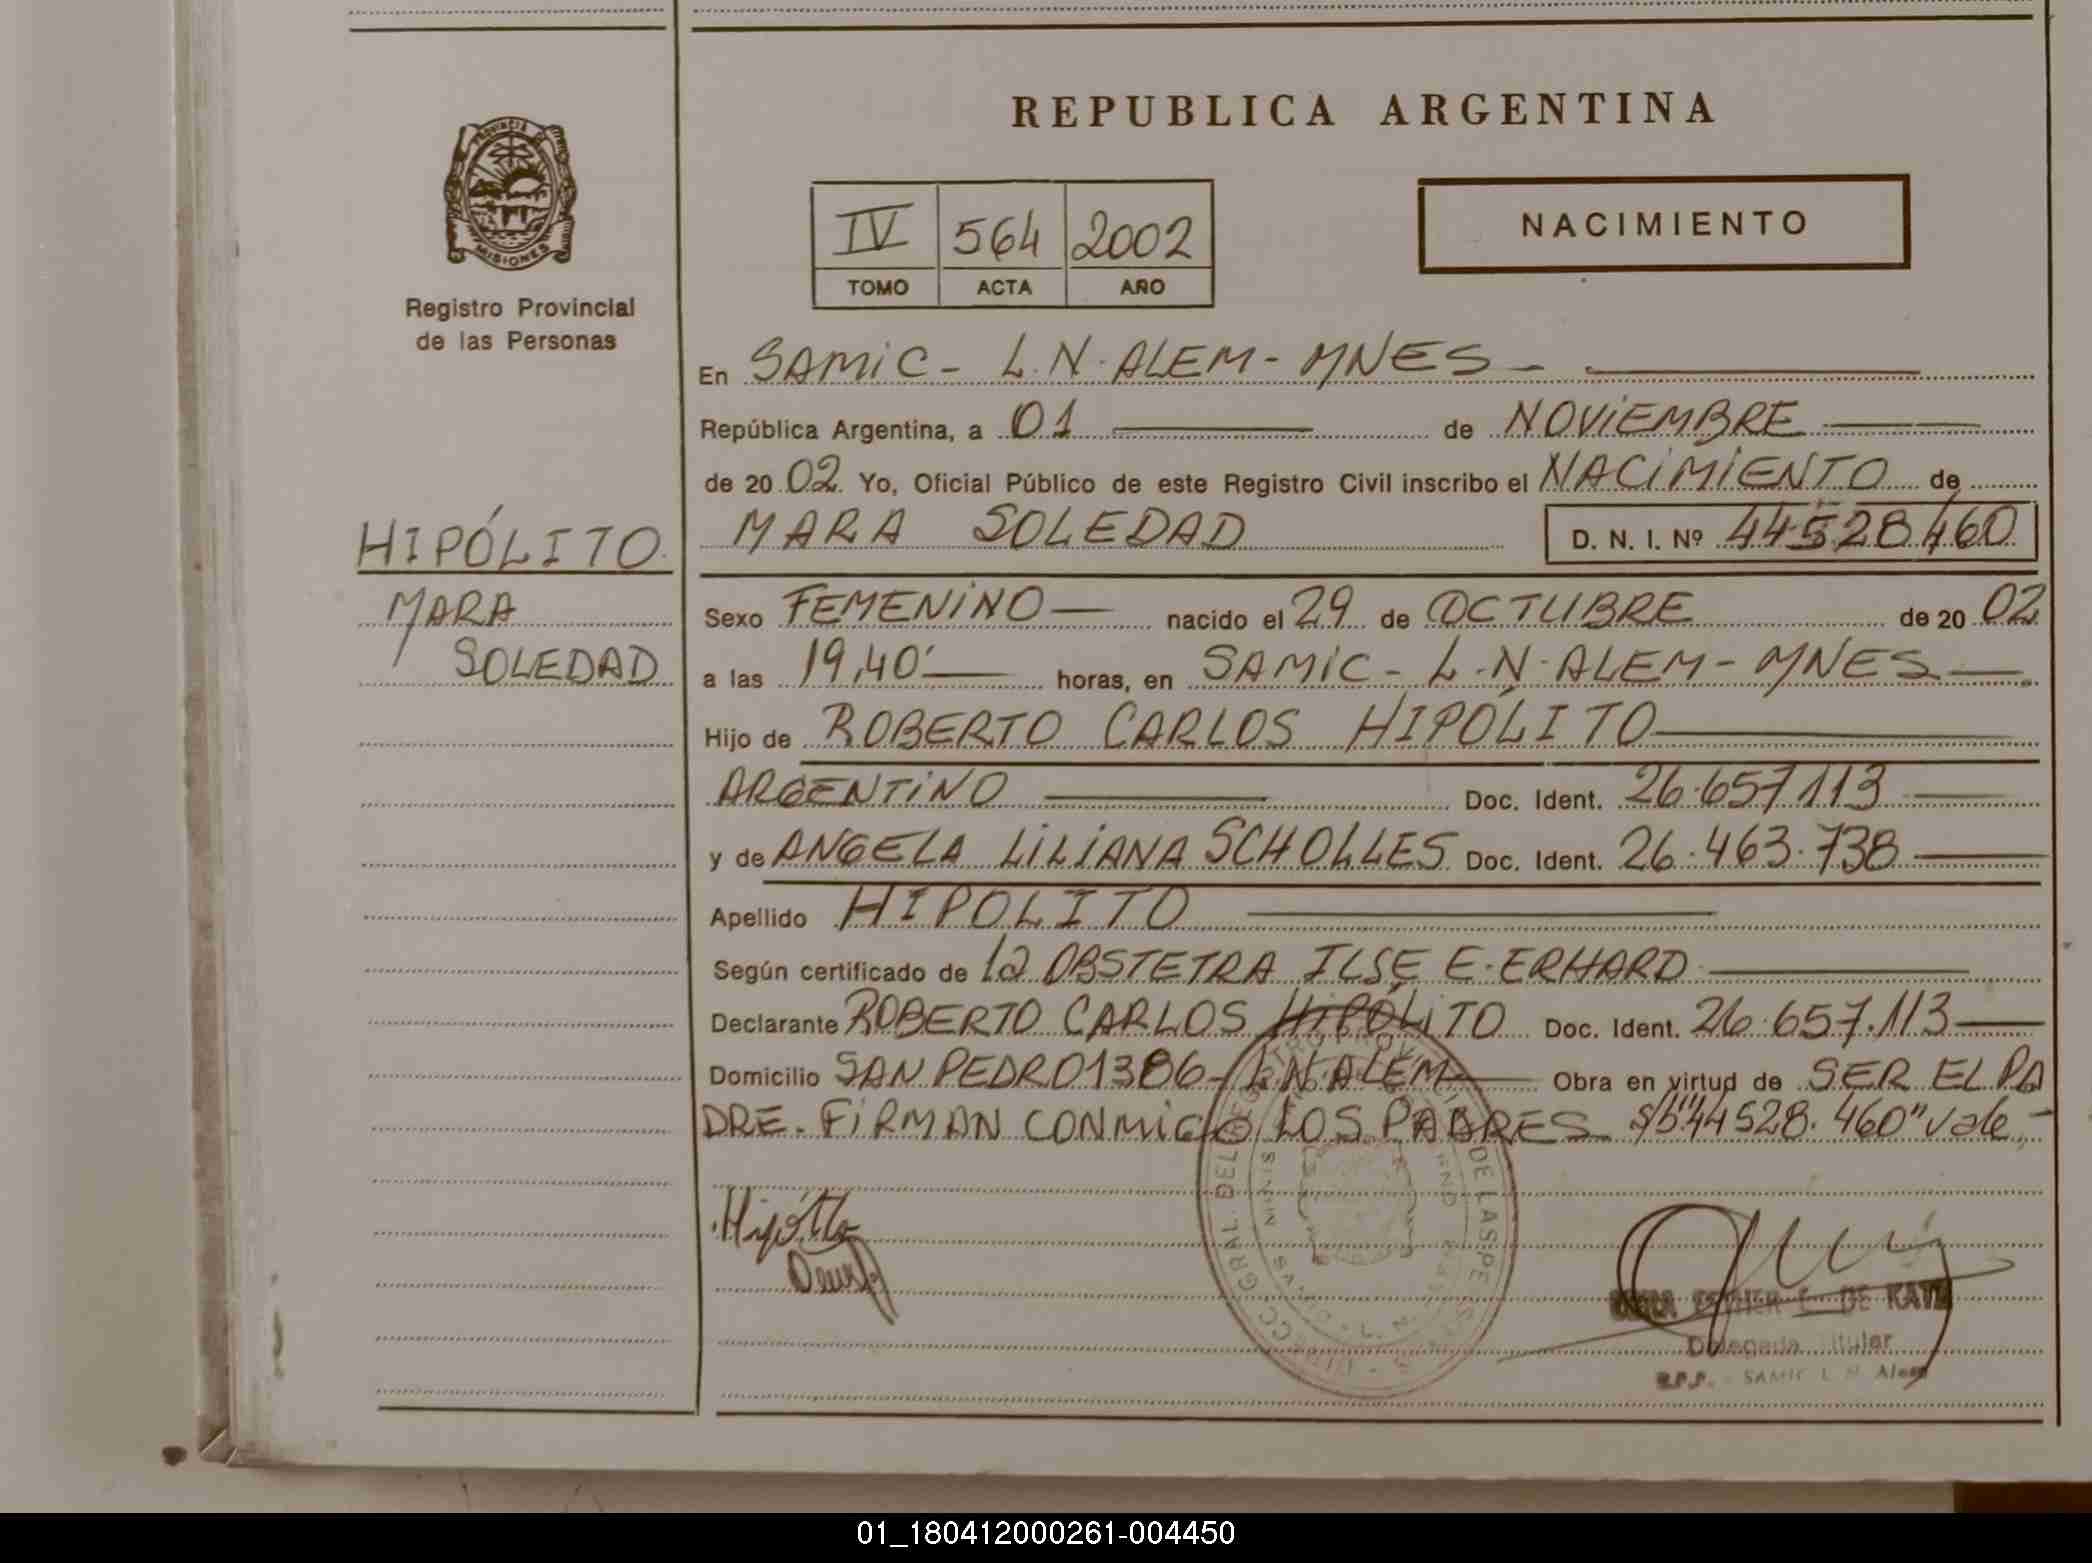 REPUBLICA ARGENTINA
PROVINCIA DE
MISIONES
Registro Provincial
de las Personas
IV 564 2002
TOMO ACTA AÑO
NACIMIENTO
En SAMIC - L.N. ALEM - MNES -
República Argentina, a 01 de NOVIEMBRE
de 2002. Yo, Oficial Público de este Registro Civil inscribo el NACIMIENTO de
MARA SOLEDAD D. N. I. Nº 44528460
HIPÓLITO
MARA
SOLEDAD
Sexo FEMENINO — nacido el 29 de OCTUBRE de 20 02
a las 19,40' horas, en SAMIC - L.N. ALEM - MNES —
Hijo de ROBERTO CARLOS HIPÓLITO
ARGENTINO Doc. Ident. 26.657.113
y de ANGELA LILIANA SCHOLLES Doc. Ident. 26.463.738
Apellido HIPOLITO
Según certificado de la OBSTETRA ILSE E. ERHARD
Declarante ROBERTO CARLOS HIPÓLITO Doc. Ident. 26.657.113
Domicilio SAN PEDRO 1386 - L.N. ALEM — Obra en virtud de SER EL PA
DRE. FIRMAN CONMIGO LOS PADRES S/b "44528.460" vale,-
Hipólito
ESTHER E. DE KATZ
Delegada Titular
R.P.P. - SAMIC L. N. Alem
01_180412000261-004450